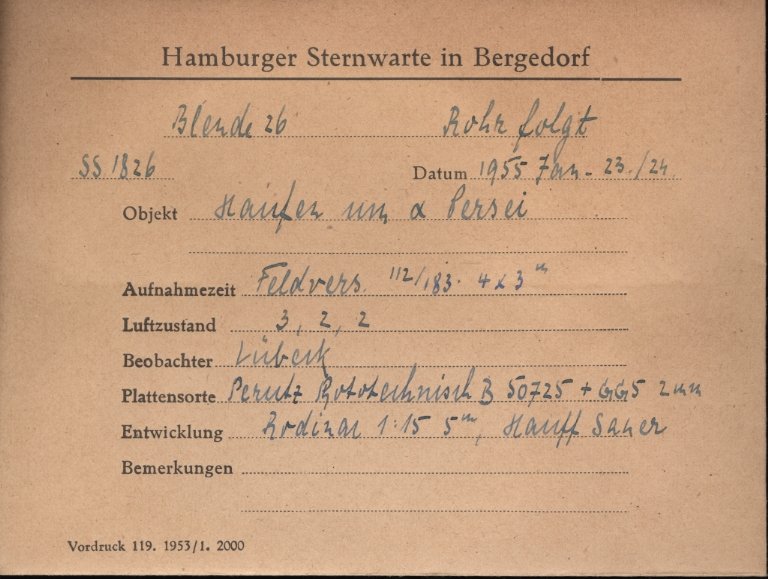 Hamburger Sternwarte in Bergedorf
Blende 26 Rohr folgt
SS 1826 Datum 1955 Jan - 23./24
Objekt Haufen um α Persei
Aufnahmezeit Feldvers. 112/183. 4 x 3 m
Luftzustand 3, 2, 2
Beobachter Lübeck
Plattensorte Perutz Phototechnisch B 50725 + GG5 2mm
Entwicklung Rodinal 1:15 5m, Hauff Sauer
Bemerkungen
Vordruck 119. 1953/1. 2000